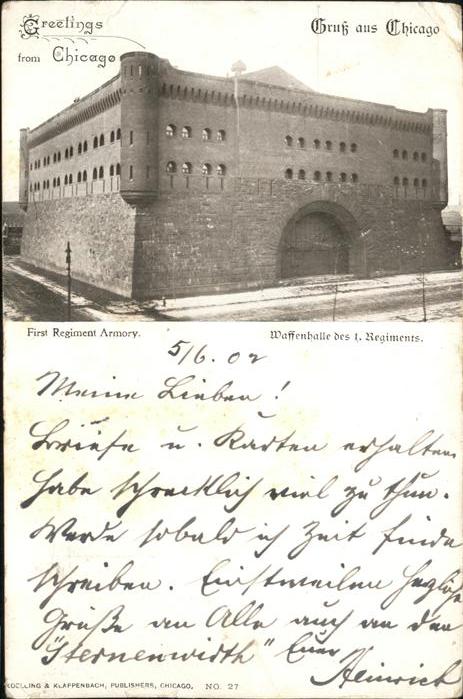 Greetings
from Chicago
Gruß aus Chicago
First Regiment Armory.
Waffenhalle des 1. Regiments.
5/6. 02
Meine Lieben!
Briefe u. Karten erhalten.
habe schrecklich viel zu thun.
Werde sobald ich Zeit finde
schreiben. Einstweilen herzliche
Grüße an Alle auch an den
"Sternenwirth" Euer
Heinrich
KOELLING & KLAPPENBACH, PUBLISHERS, CHICAGO. NO. 27